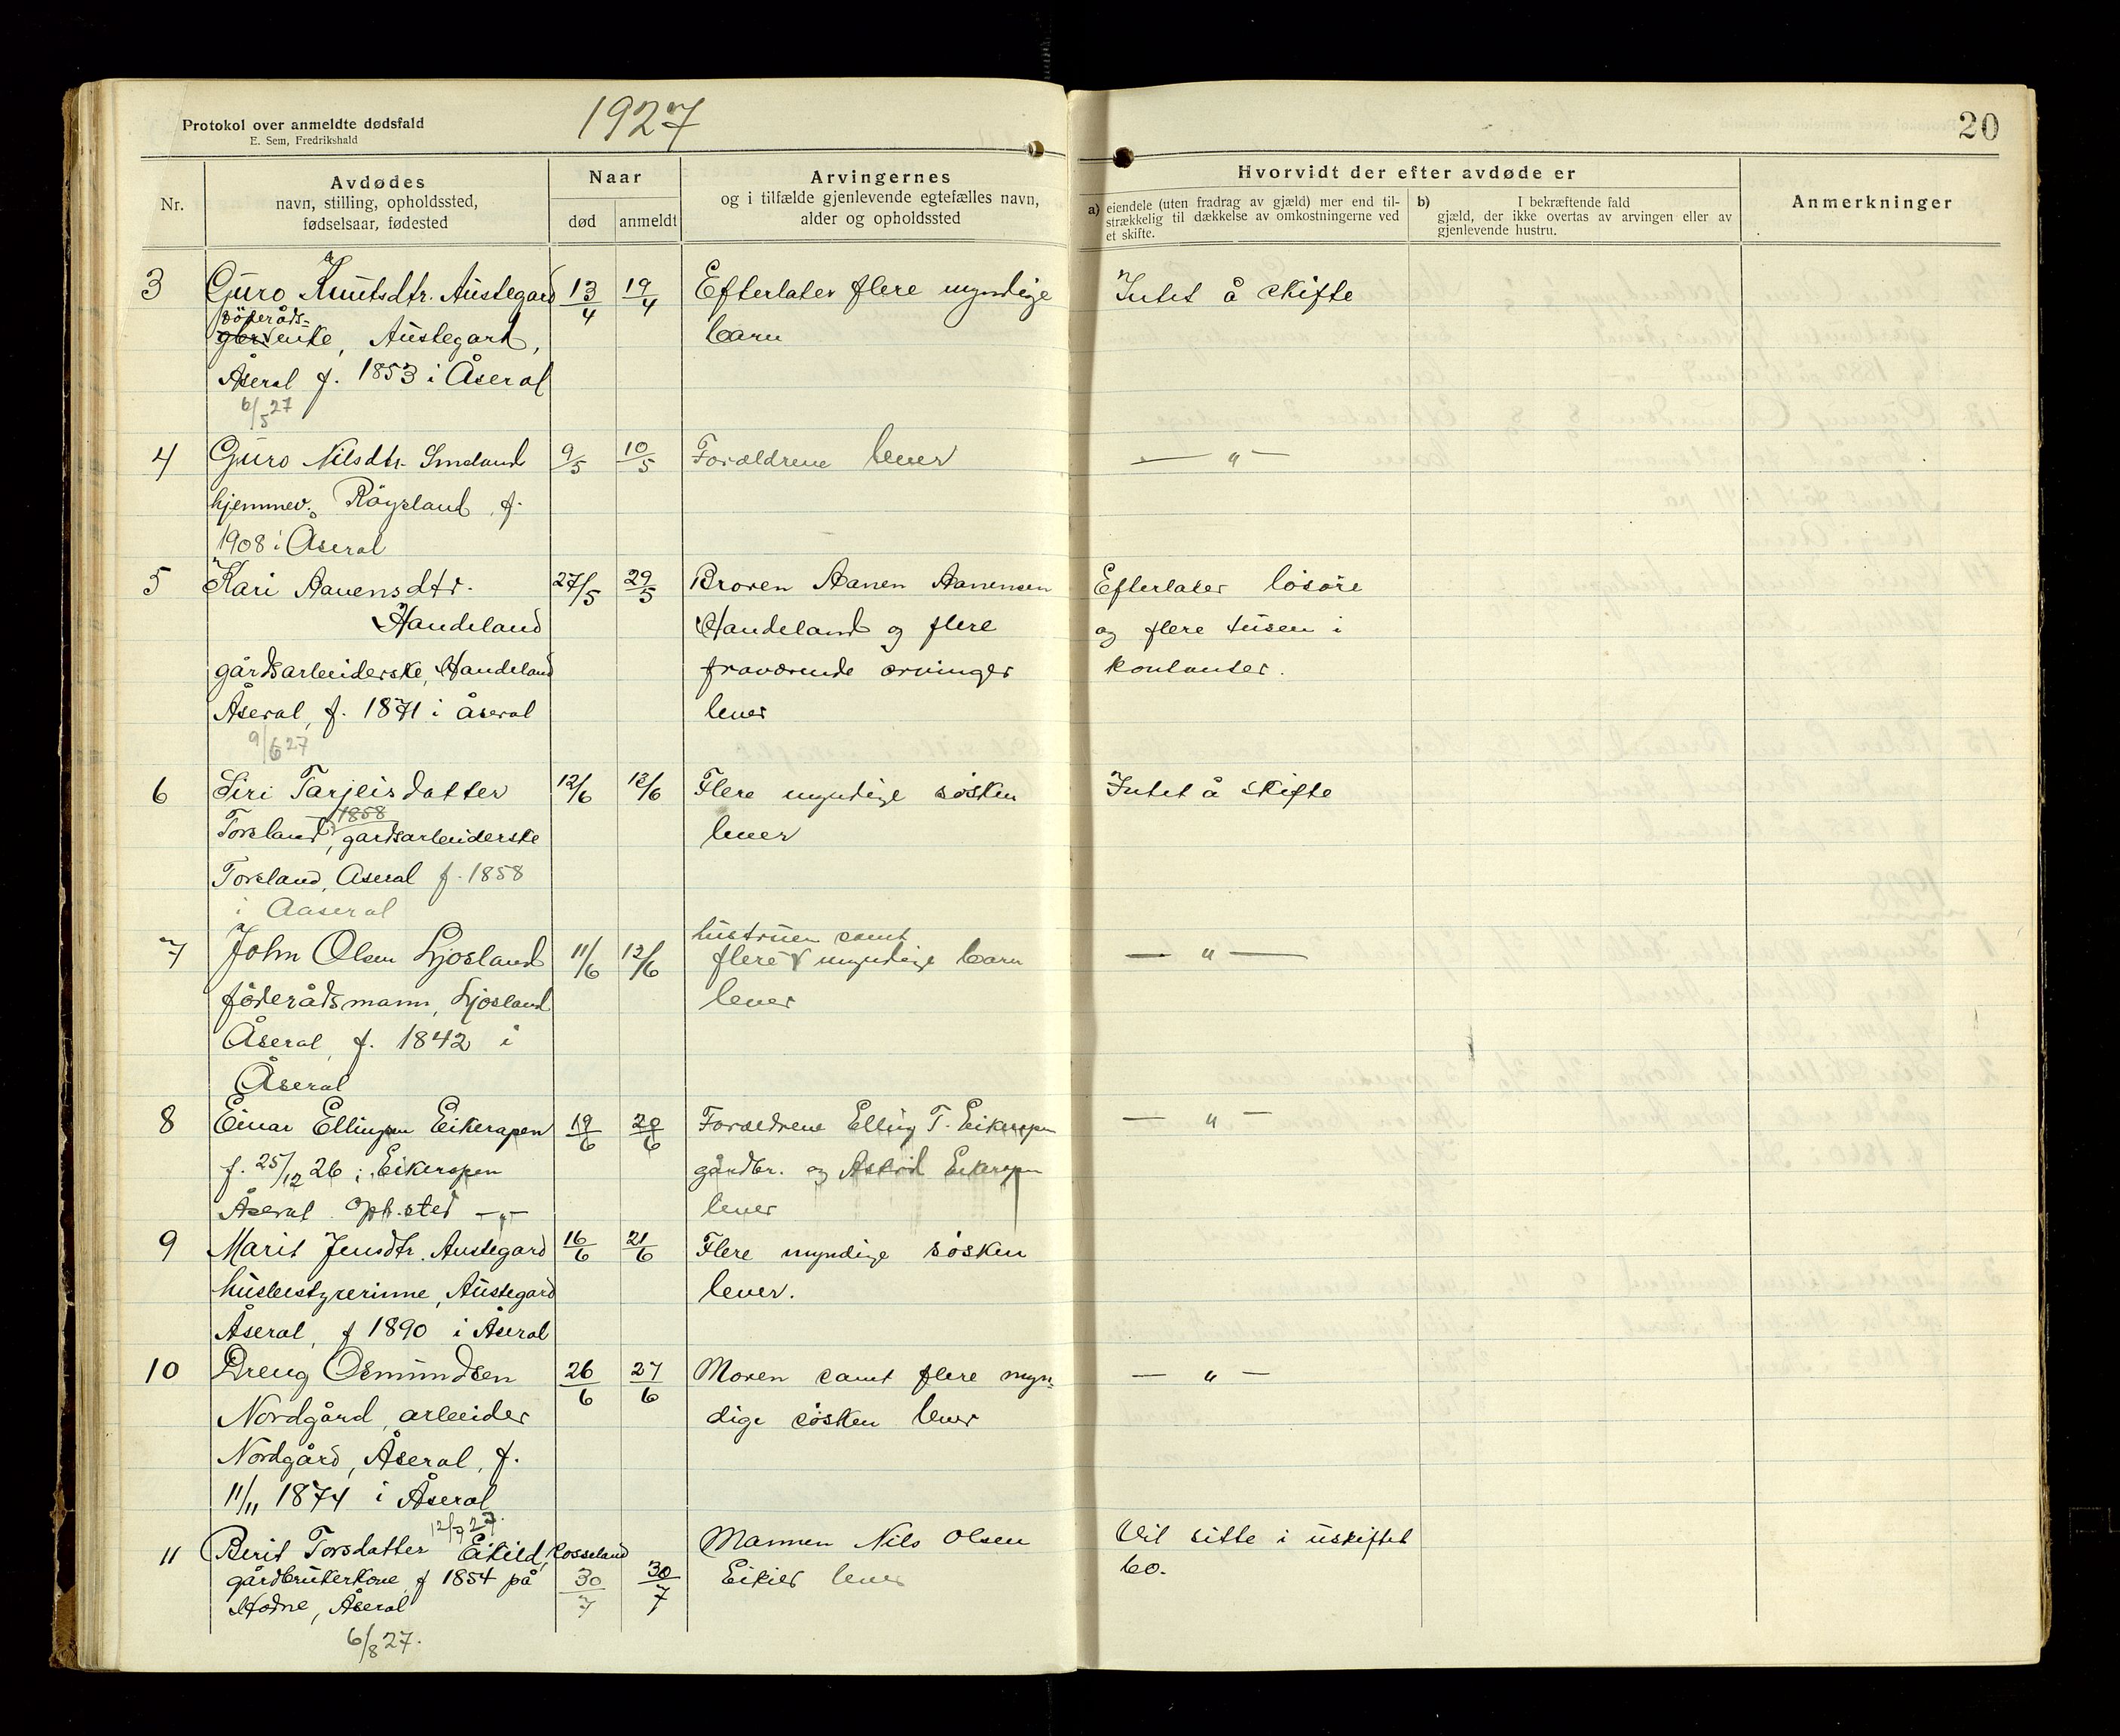 Protokol over anmeldte dødsfald
E. Sem, Fredrikshald
1927
20
Nr.
Avdødes
navn, stilling, opholdssted,
fødselsaar, fødested
Naar
død
anmeldt
Arvingernes
og i tilfælde gjenlevende egtefælles navn,
alder og opholdssted
Hvorvidt der efter avdøde er
a) eiendele (uten fradrag av gjæld) mer end til-
strækkelig til dækkelse av omkostningerne ved
et skifte.
b) I bekræftende fald
gjæld, der ikke overtas av arvingen eller av
gjenlevende hustru.
Anmerkninger
3 Guro Knutsdtr. Austegard 13/4 19/4 Efterlater flere myndige Intet å skifte
föderåds-
enke, Austegard, barn
Åseral f. 1853 i Åseral
6/5 27
4 Guro Nilsdtr. Smeland 9/5 10/5 Forældrene lever — " —
hjemmev. Röysland, f.
1908 i Åseral
5 Kari Aanensdtr. 27/5 29/5 Broren Aanen Aanensen Efterlater løsøre
Handeland Handeland og flere og flere tusen i
gårdsarbeiderske, Handeland fraværende arvinger kontanter.
Åseral, f. 1871 i Åseral lever
9/6 27
6 Siri Tarjeisdatter 12/6 12/6 Flere myndige søsken Intet å skifte
1858
Torsland, gardsarbeiderske lever
Torsland, Åseral f. 1858
i Aaseral
hustruen samt
7 John Olsen Ljosland 11/6 12/6 flere myndige barn — " —
föderådsmann, Ljosland lever
Åseral, f. 1842 i
Åseral
8 Einar Ellingsen Eikerapen 19/6 20/6 Forældrene Elling T. Eikerapen — " —
f. 25/12 26 i Eikerapen gårdbr. og Astrid Eikerapen
Åseral Oph.sted — " — lever
9 Marit Jensdtr. Austegard 16/6 21/6 Flere myndige søsken
husbestyrerinne, Austegard lever.
Åseral, f 1890 i Åseral
10 Dreng Osmundsen 26/6 27/6 Moren samt flere myn- — " —
Nordgård, arbeider dige søsken lever
Nordgård, Åseral, f.
11/11 1874 i Åseral
12/7 27.
11 Berit Torsdatter Eikild, Rosseland Mannen Nils Olsen Vil sitte i uskiftet
gårdbrukerkone f 1854 på 30/7 30/7 Eikild lever bo.
Hodne, Åseral
6/8 27.